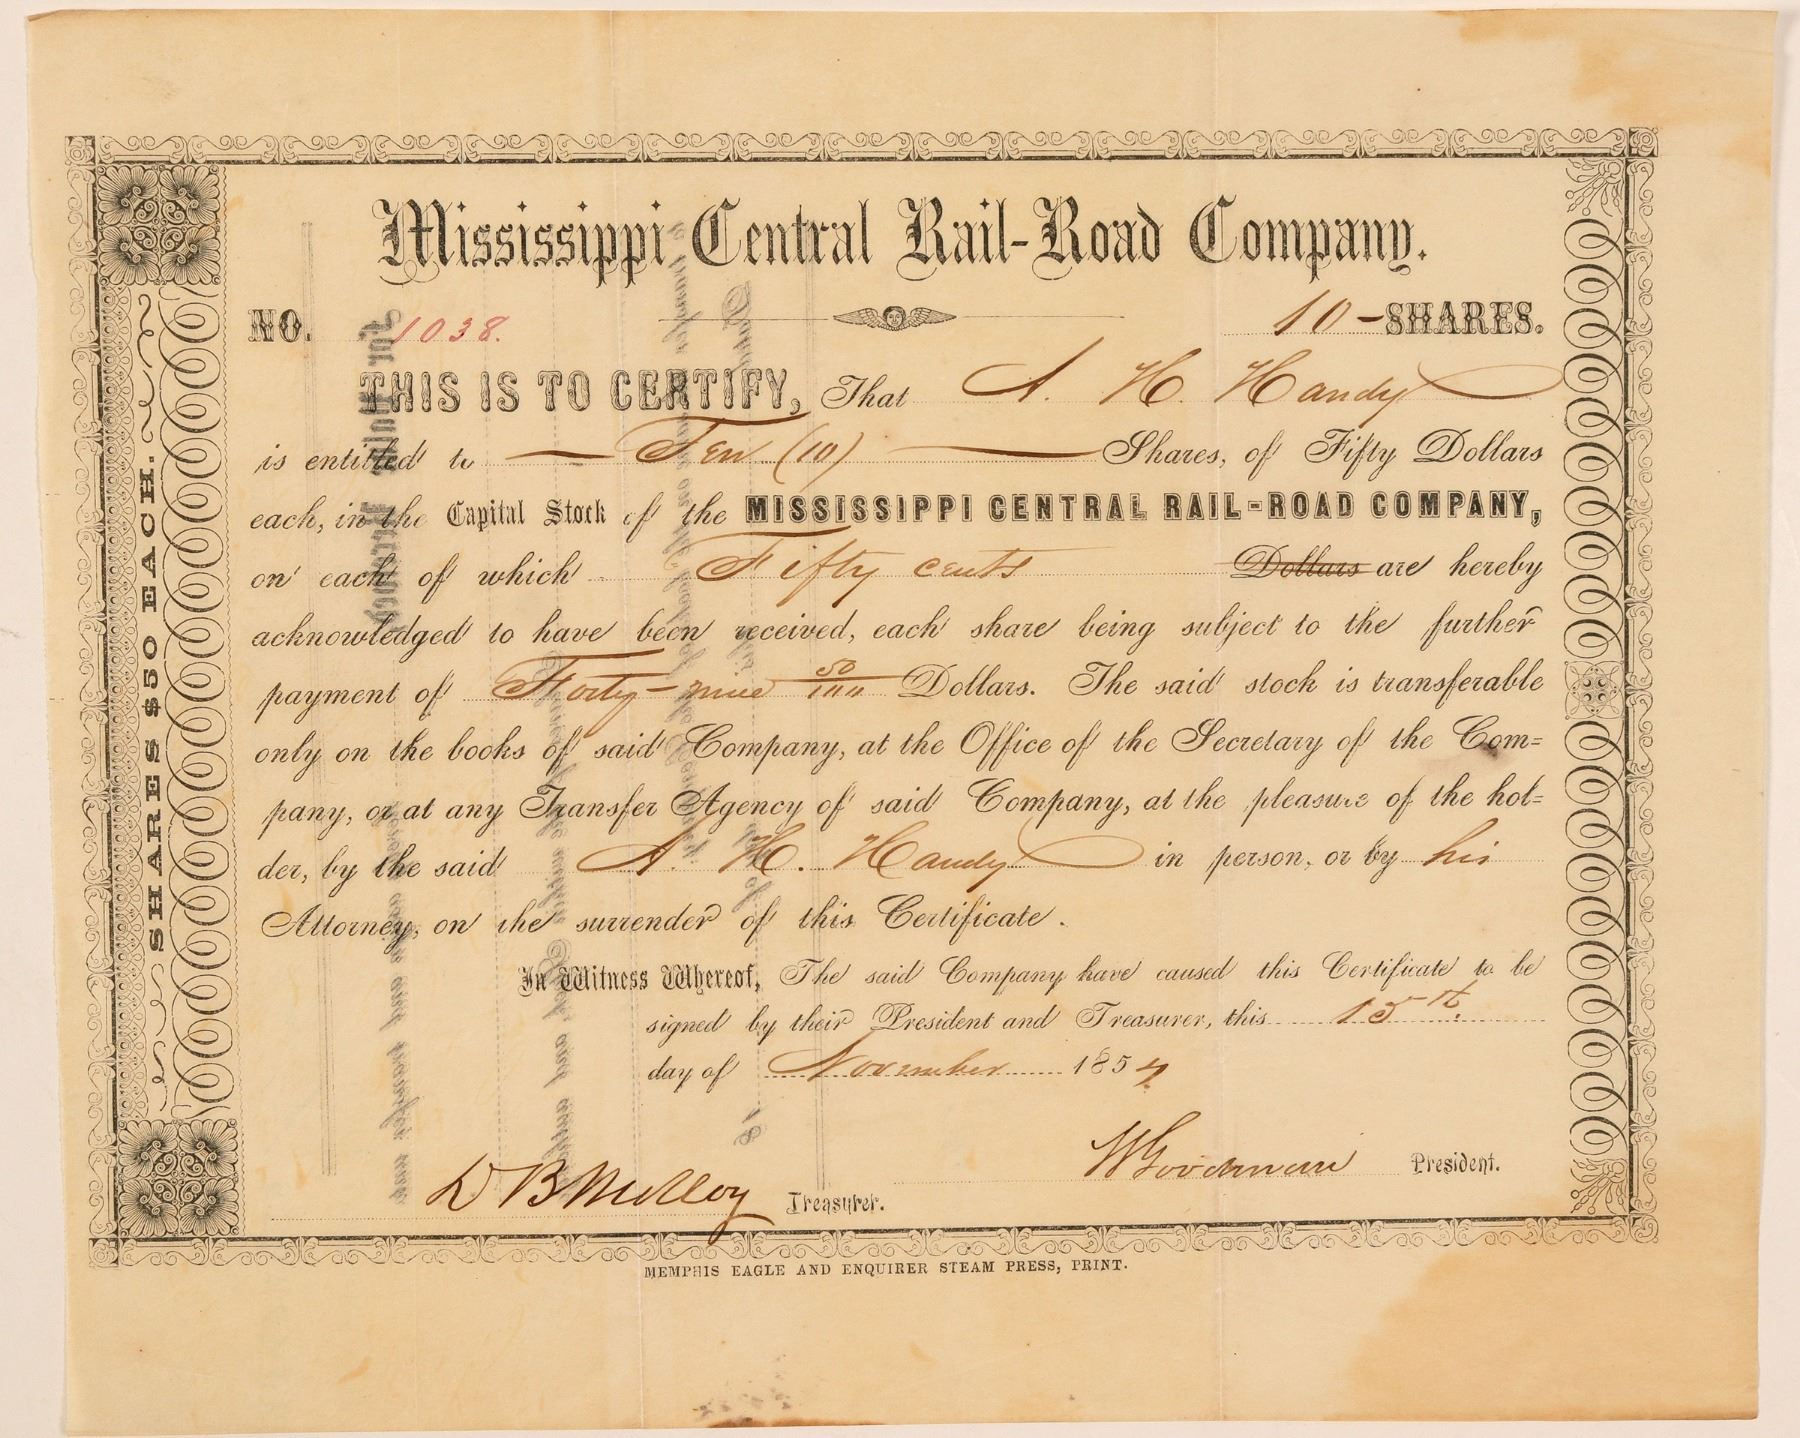 Mississippi Central Rail-Road Company.
NO. 1038. 10 - SHARES.
THIS IS TO CERTIFY, That A. H. Handy
is entitled to Ten (10) Shares, of Fifty Dollars
each, in the Capital Stock of the MISSISSIPPI CENTRAL RAIL-ROAD COMPANY,
on each of which Fifty cents Dollars are hereby
acknowledged to have been received, each share being subject to the further
payment of Forty-nine 50/100 Dollars. The said stock is transferable
only on the books of said Company, at the Office of the Secretary of the Com=
pany, or at any Transfer Agency of said Company, at the pleasure of the hol=
der, by the said A. H. Handy in person, or by his
Attorney, on the surrender of this Certificate.
In Witness Whereof, The said Company have caused this Certificate to be
signed by their President and Treasurer, this 15th.
day of November 1854
W Goodman President.
D B Molloy Treasurer.
MEMPHIS EAGLE AND ENQUIRER STEAM PRESS, PRINT.
SHARES $50 EACH.